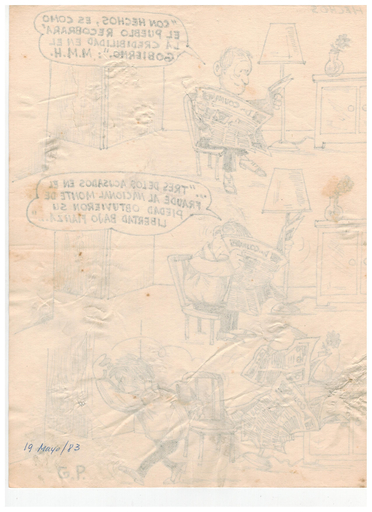 "CON HECHOS, ES COMO
EL PUEBLO RECOBRARA
LA CREDIBILIDAD EN EL
GOBIERNO.": M.M.H.
"TRES DE LOS ACUSADOS EN EL
FRAUDE AL NACIONAL MONTE DE
PIEDAD OBTUVIERON SU
LIBERTAD BAJO FIANZA.
19 Mayo/83